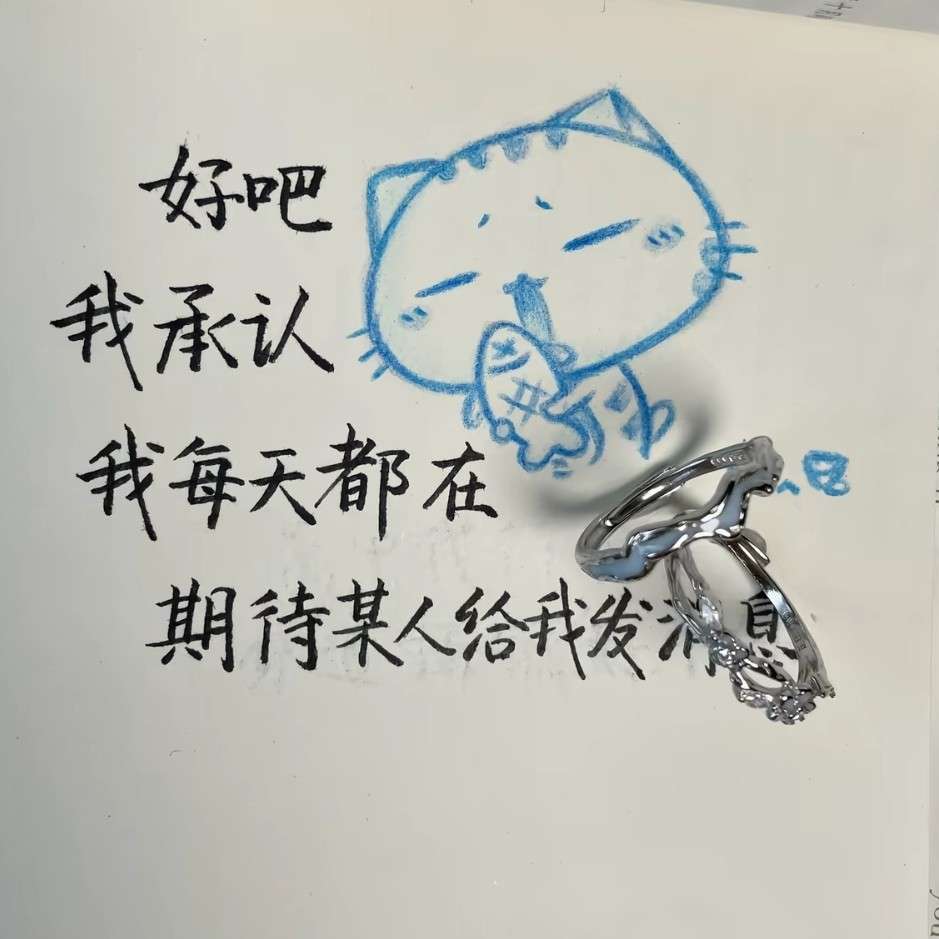 好吧
我承认
我每天都在
期待某人给我发消息